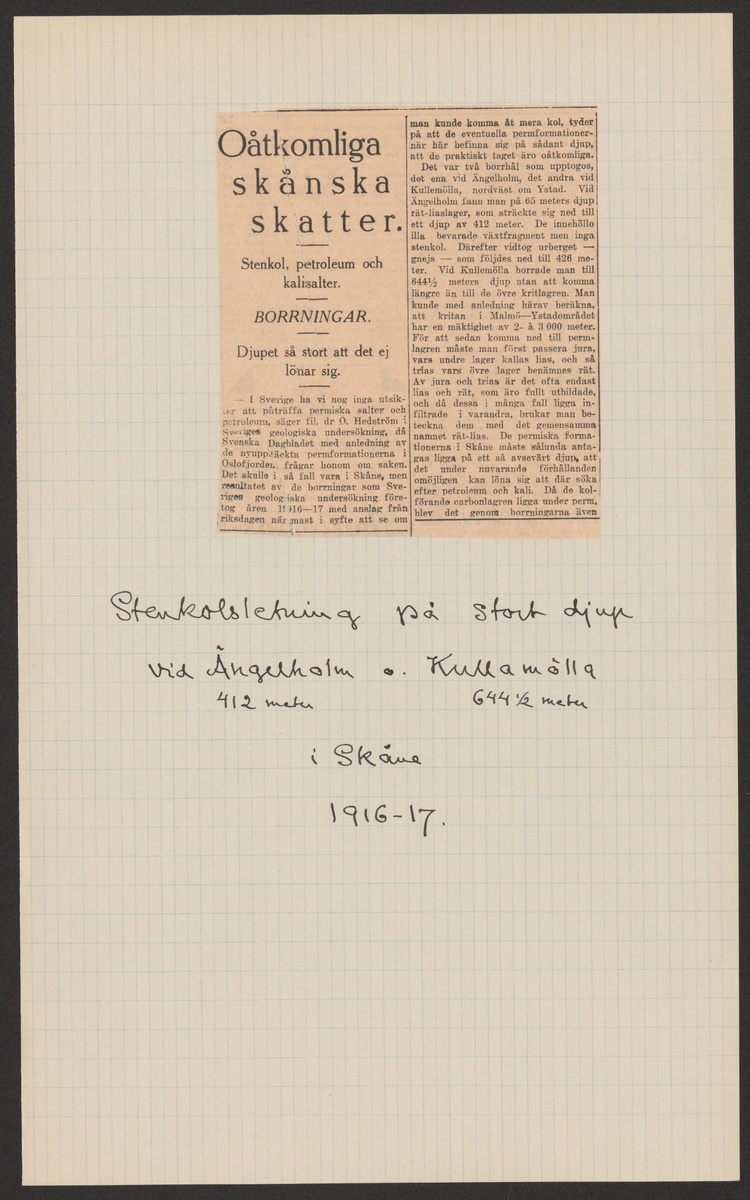 Oåtkomliga
skånska
skatter.
Stenkol, petroleum och
kalisalter.
BORRNINGAR.
Djupet så stort att det ej
lönar sig.
— I Sverige ha vi nog inga utsik-
ter att påträffa permiska salter och
petroleum, säger fil. dr O. Hedström i
Sveriges geologiska undersökning, då
Svenska Dagbladet med anledning av
de nyupptäckta permformationerna i
Oslofjorden frågar honom om saken.
Det skulle i så fall vara i Skåne, men
resultatet av de borrningar som Sve-
riges geologiska undersökning före-
tog åren 1916—17 med anslag från
riksdagen närmast i syfte att se om
man kunde komma åt mera kol, tyder
på att de eventuella permformationer-
när här befinna sig på sådant djup,
att de praktiskt taget äro oåtkomliga.
Det var två borrhål som upptogos,
det ena vid Ängelholm, det andra vid
Kullemölla, nordväst om Ystad. Vid
Ängelholm fann man på 65 meters djup
rät-liaslager, som sträckte sig ned till
ett djup av 412 meter. De innehöllo
illa bevarade växtfragment men inga
stenkol. Därefter vidtog urberget —
gnejs — som följdes ned till 426 me-
ter. Vid Kullemölla borrade man till
644½ meters djup utan att komma
längre än till de övre kritlagren. Man
kunde med anledning härav beräkna,
att kritan i Malmö—Ystadområdet
har en mäktighet av 2- à 3 000 meter.
För att sedan komma ned till perm-
lagren måste man först passera jura,
vars undre lager kallas lias, och så
trias vars övre lager benämnes rät.
Av jura och trias är det ofta endast
lias och rät, som äro fullt utbildade,
och då dessa i många fall ligga in-
filtrade i varandra, brukar man be-
teckna dem med det gemensamma
namnet rät-lias. De permiska forma-
tionerna i Skåne måste sålunda anta-
gas ligga på ett så avsevärt djup, att
det under nuvarande förhållanden
omöjligen kan löna sig att där söka
efter petroleum och kali. Då de kol-
förande carbonlagren ligga under perm,
blev det genom borrningarna även
Stenkolsletning på stort djup
vid Ängelholm o. Kullamölla
412 meter 644 ½ meter
i Skåne
1916-17.